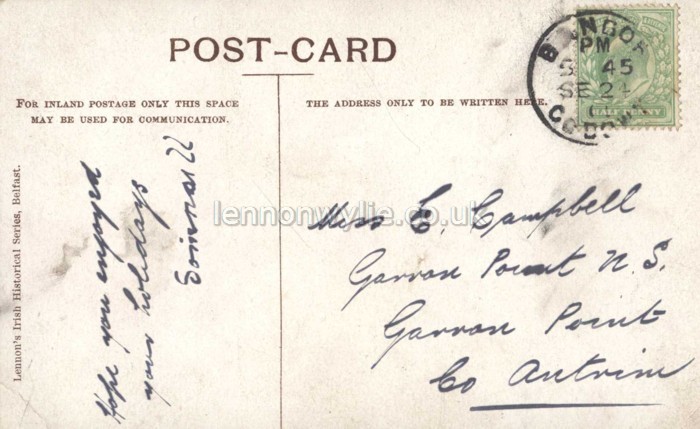 POST-CARD
FOR INLAND POSTAGE ONLY THIS SPACE
MAY BE USED FOR COMMUNICATION.
THE ADDRESS ONLY TO BE WRITTEN HERE.
BANGOR
PM
45
SE 24
CO. DOWN
HALF PENNY
Lennon's Irish Historical Series, Belfast.
Hope you enjoyed
your holidays
lennonwylie.co.uk
Miss E. Campbell
Garron Point N.S.
Garron Point
Co Antrim